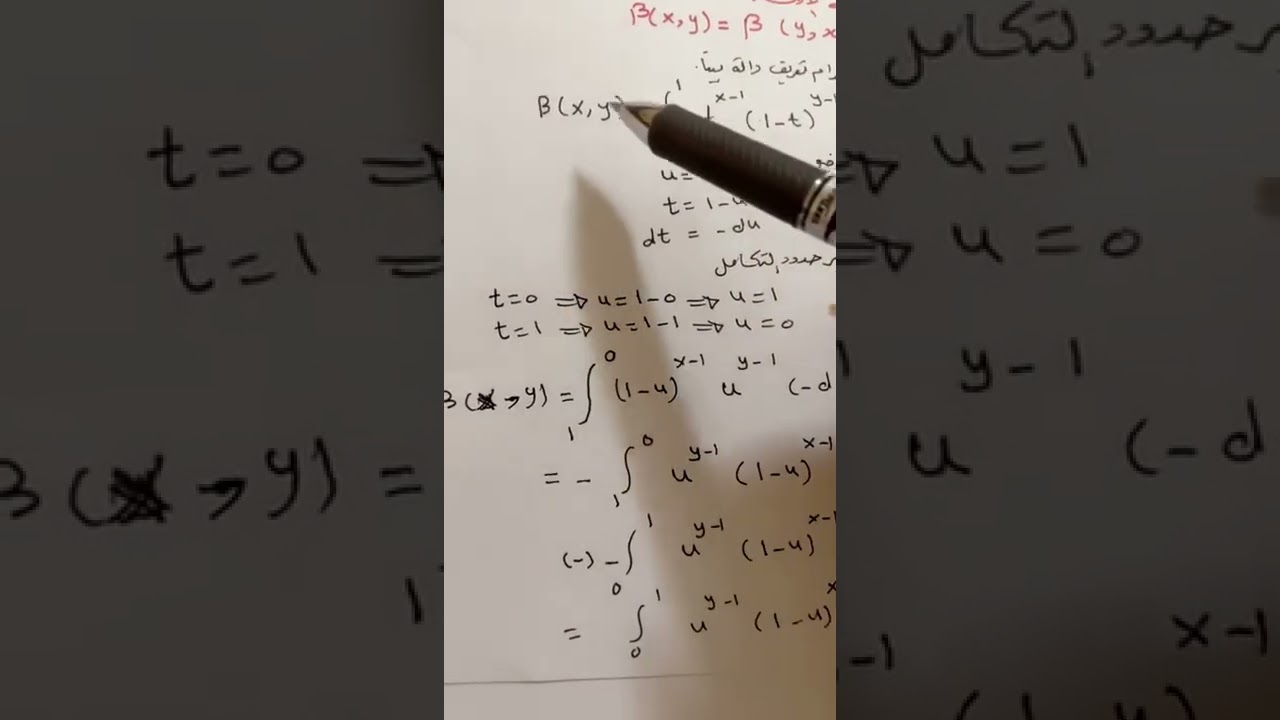 β(x,y) = β (y,x
تعريف دالة بيتا.
β(x,y) ∫ 1 t^{x-1} (1-t)^{y-1}
u=
t = 1-u
dt = -du
حدود التكامل
t=0 ⇒ u=1-0 ⇒ u=1
t=1 ⇒ u=1-1 ⇒ u=0
β(x,y) = ∫_1^0 (1-u)^{x-1} u^{y-1} (-d
= - ∫_1^0 u^{y-1} (1-u)^{x-1}
(-) - ∫_0^1 u^{y-1} (1-u)^{x-1}
= ∫_0^1 u^{y-1} (1-u)^x